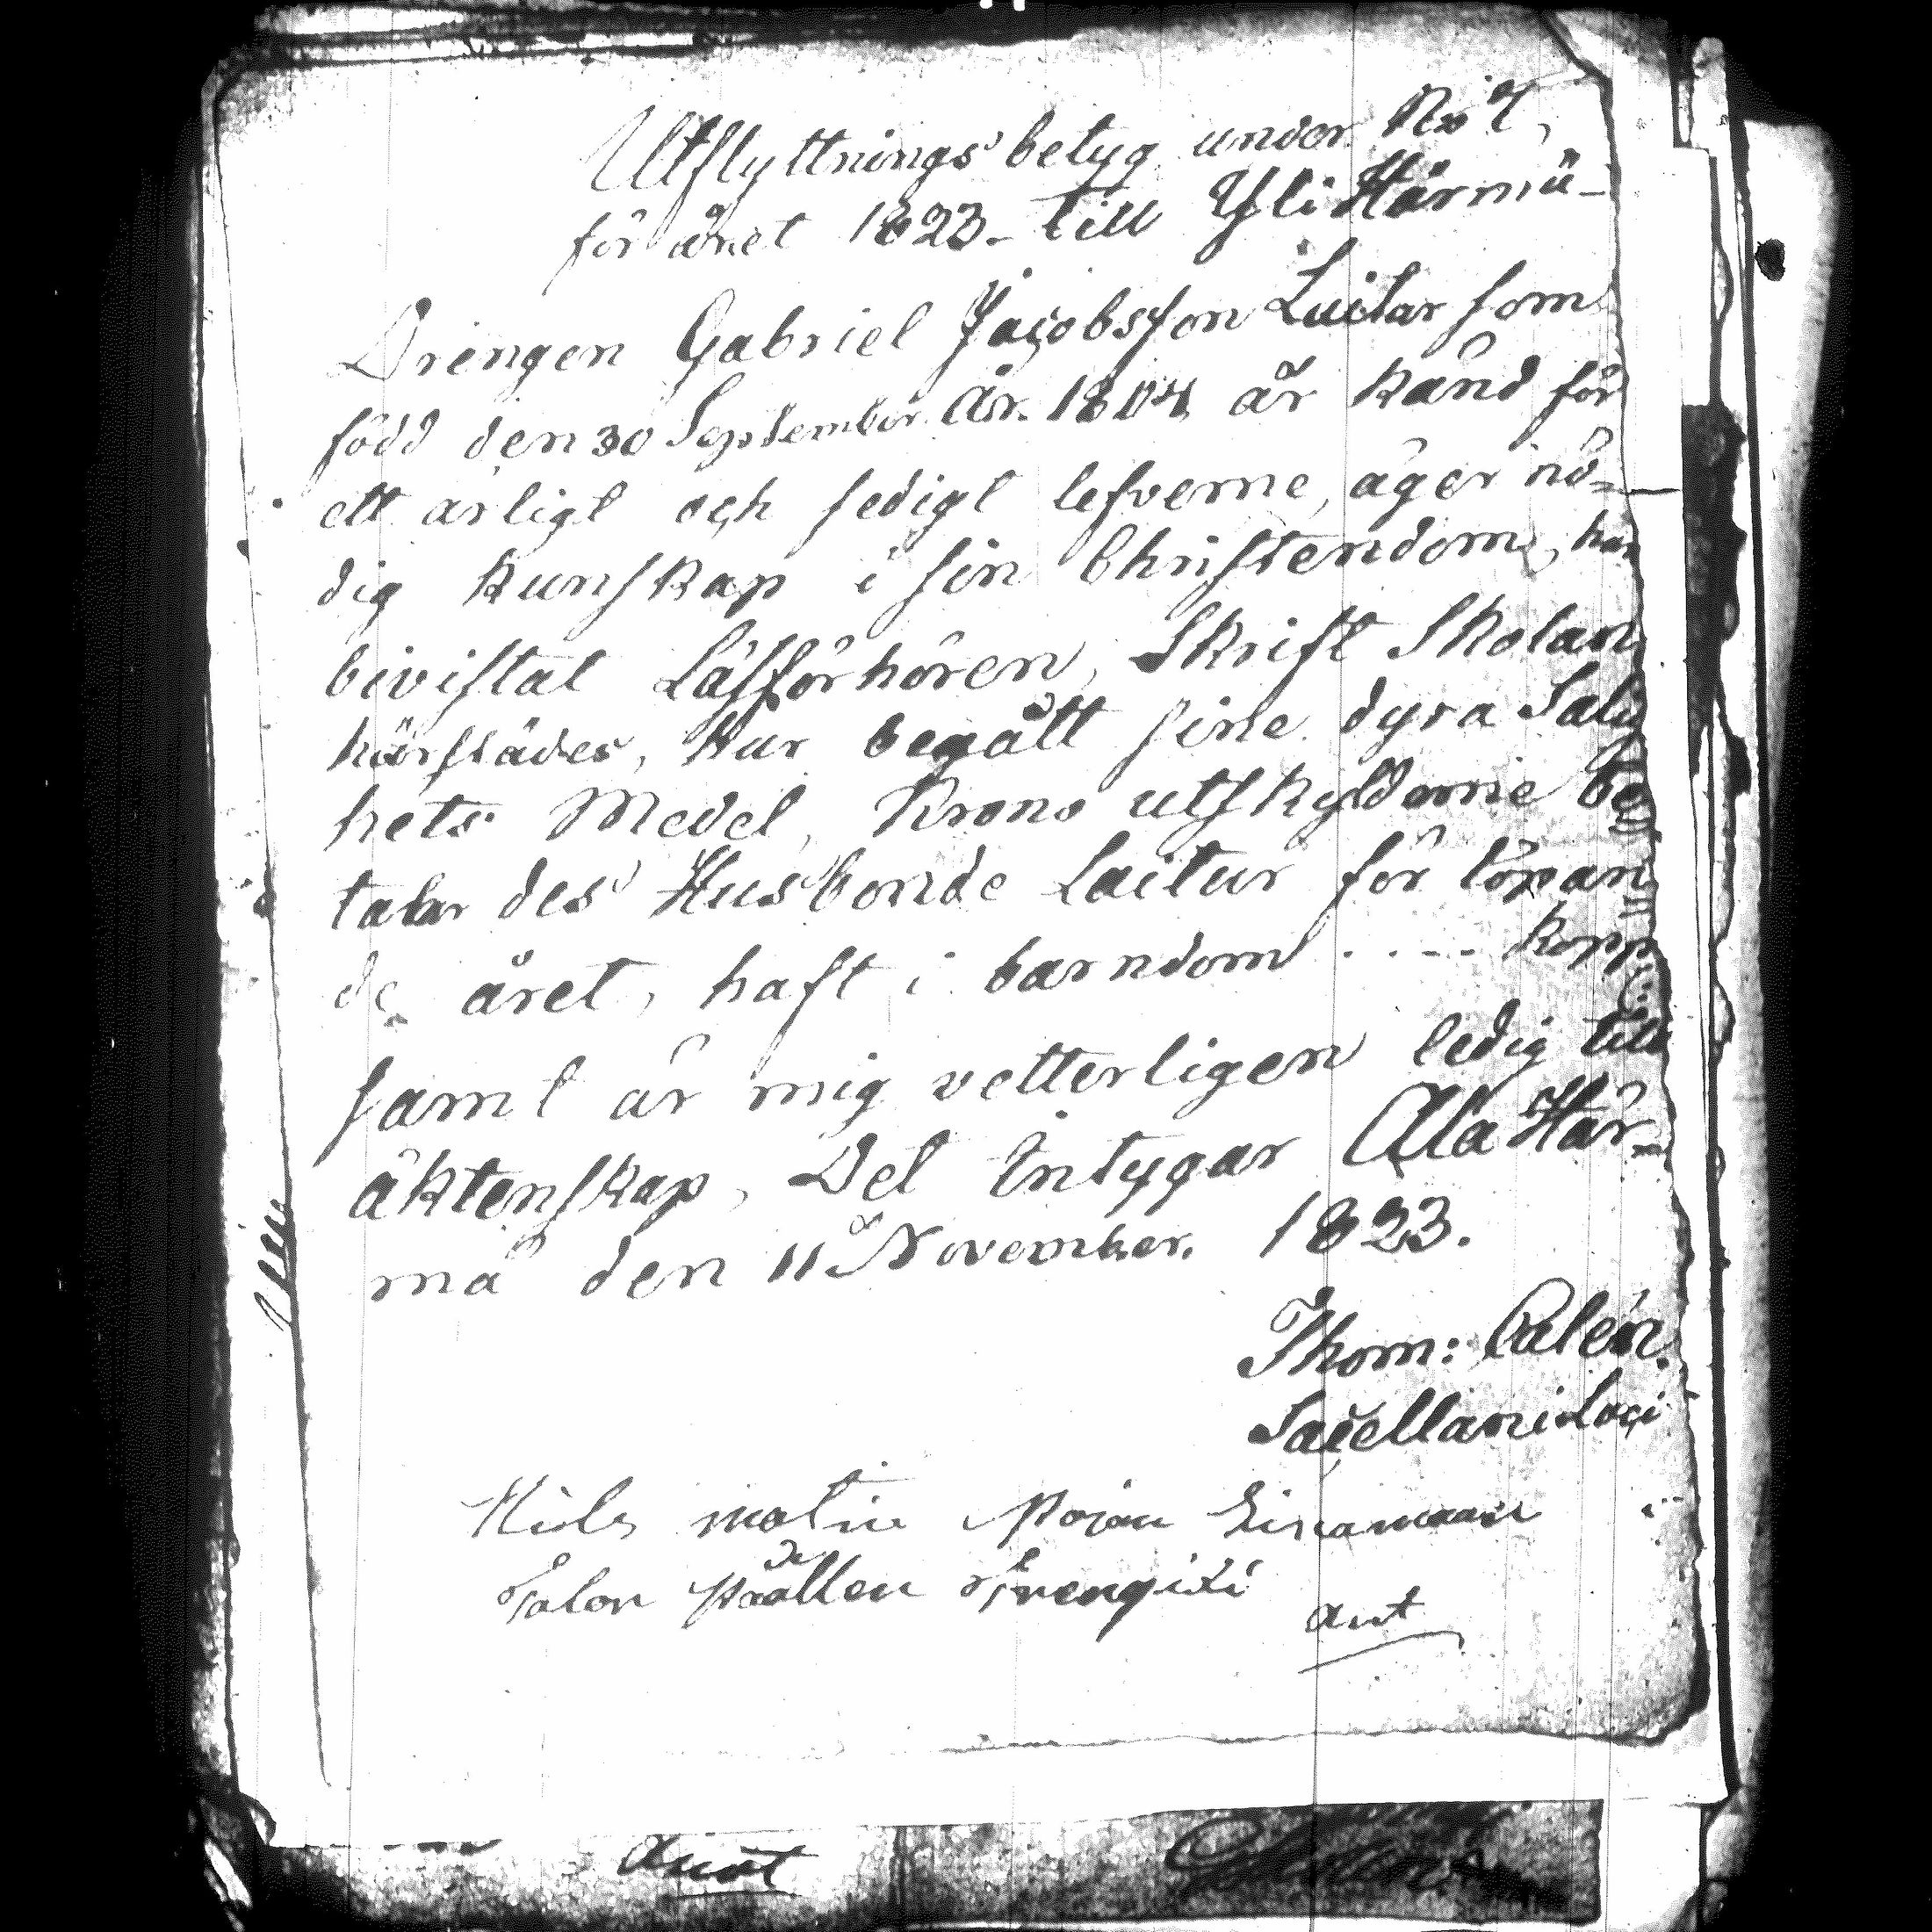 Utflyttnings betyg under No 7,
för året 1823. till Yli Härmä-
Drengen Gabriel Jacobsson Luitar som
född den 30 September År. 1804 är känd för
ett ärligt och sedigt lefverne, äger nö=
dig kunskap i sin Christendom, har
bivistat Läsförhören, Skrift Skolan
härstädes, Har begått sine dyra Salig
hets Medel, Krono utskylderne be
talar des Husbonde Laitur för löpan
de året, haft i barndom .... kopp
samt är mig vetterligen ledig till
äktenskap, Det intygar Ala Här-
mä den 11 November. 1823.
Thom: Calén.
Sacellani Loci
Talon
ant